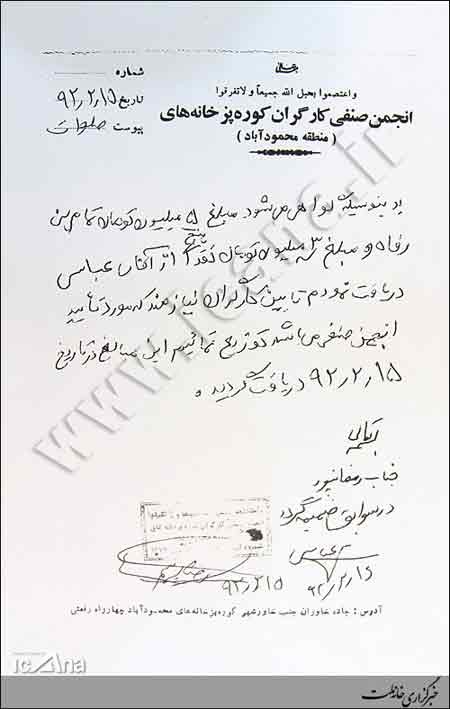 بتعالی
واعتصموا بحبل الله جمیعاً و لاتفرقوا
انجمن صنفی کارگران کوره‌پزخانه‌های
( منطقه محمودآباد )
شماره
تاریخ ۹۲٫۲٫۱۵
پیوست
بدینوسیله گواهی می‌شود مبلغ ۵ میلیون تومان تمام بن
رفاه و مبلغ ۳ میلیون تومان نقداً از آقای عباسی
دریافت نمودم تا بین کارگران نیازمند که مورد تأیید
انجمن صنفی می‌باشد توزیع نمائیم این مبالغ در تاریخ
۹۲٫۲٫۱۵ دریافت گردید .
جناب رمضانپور
در سوابق ضمیمه گردد
عباسی
۹۲٫۲٫۱۶
۹۲٫۲٫۱۵
آدرس : جاده خاوران جنب خاورشهر کوره‌پزخانه‌های محمودآباد چهارراه رفعتی
www.icana.ir
icana
خبرگزاری خانه ملت